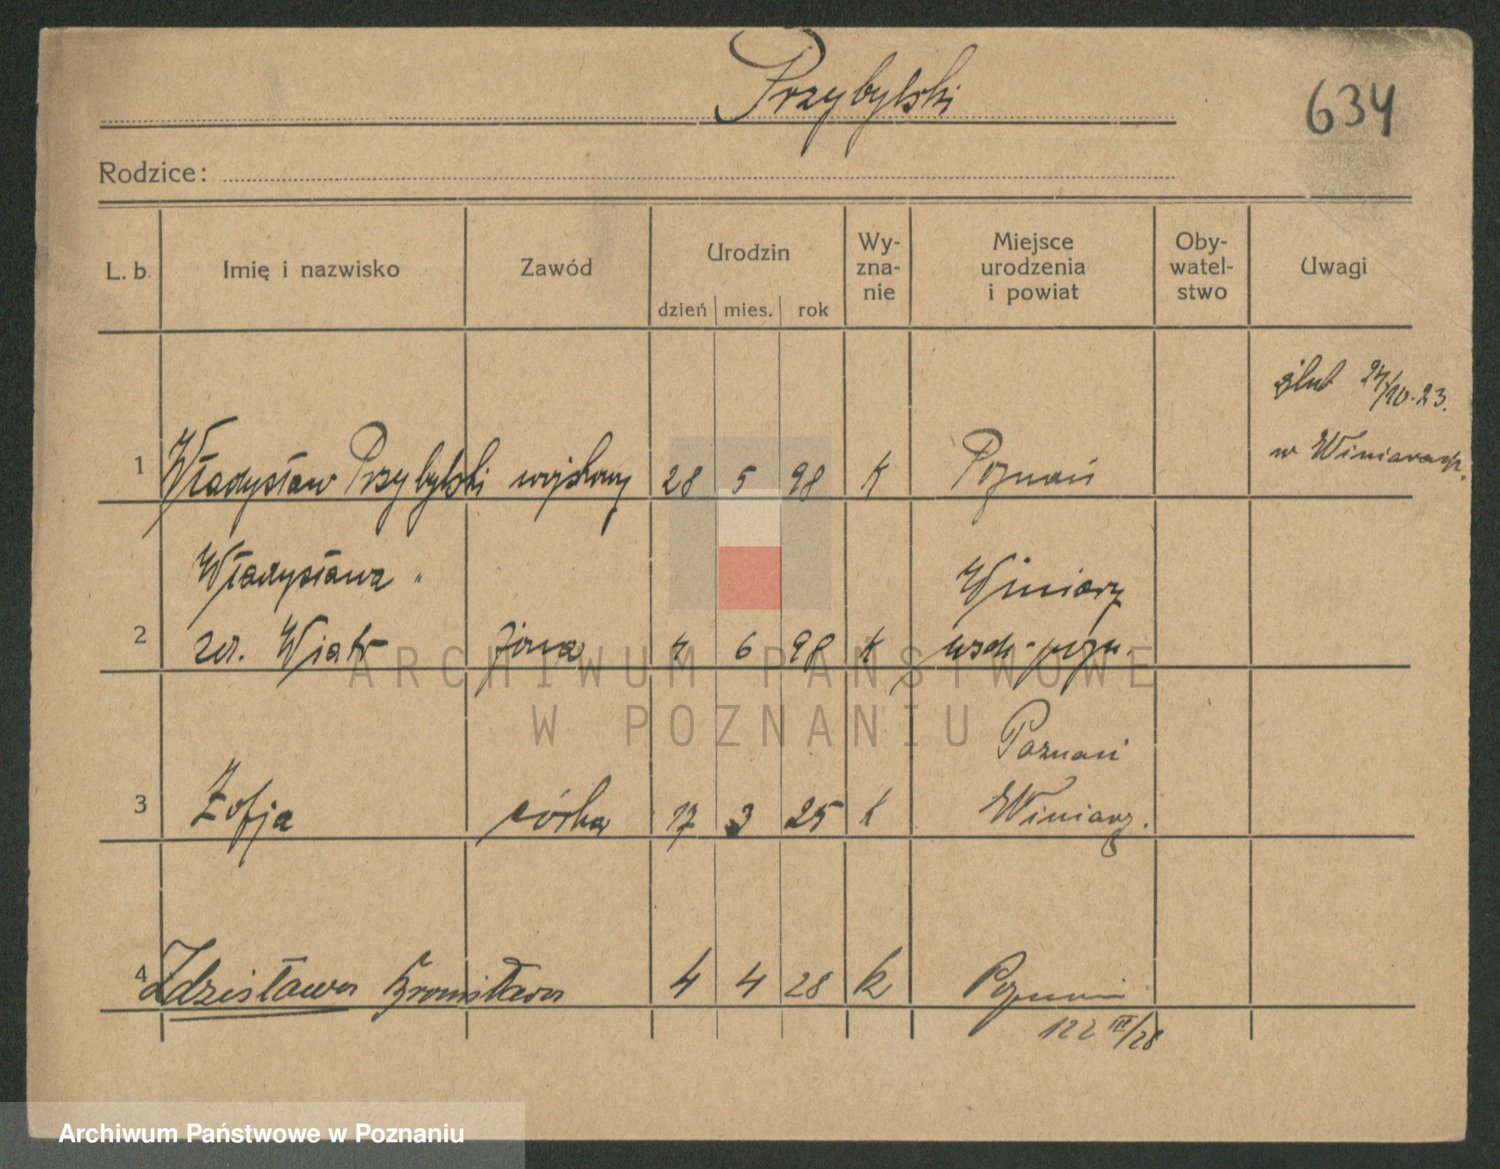 Przybylski
634
Rodzice:
L. b. Imię i nazwisko Zawód Urodzin Wy-zna-nie Miejsce urodzenia i powiat Oby-watel-stwo Uwagi
dzień mies. rok
ślub 24/10.23.
w Winiarach.
1 Władysław Przybylski wojskowy 28 5 98 k Poznań
Władysława " Winiary
2 zd. Wiatr żona 4 6 98 k wsch-pozn.
Poznań
3 Zofja córka 17 3 25 k Winiary.
4 Zdzisława Bronisława 4 4 28 k Poznań
122 III/28
ARCHIWUM PAŃSTWOWE
W POZNANIU
Archiwum Państwowe w Poznaniu